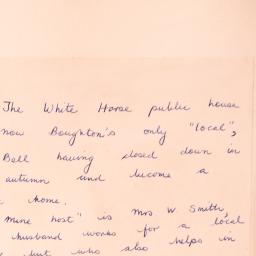 The White Horse public house
now Boughton's only "local",
Bell having closed down in
autumn and become a
home.
mine host" is Mrs W. Smith,
husband works for a local
but who also helps in